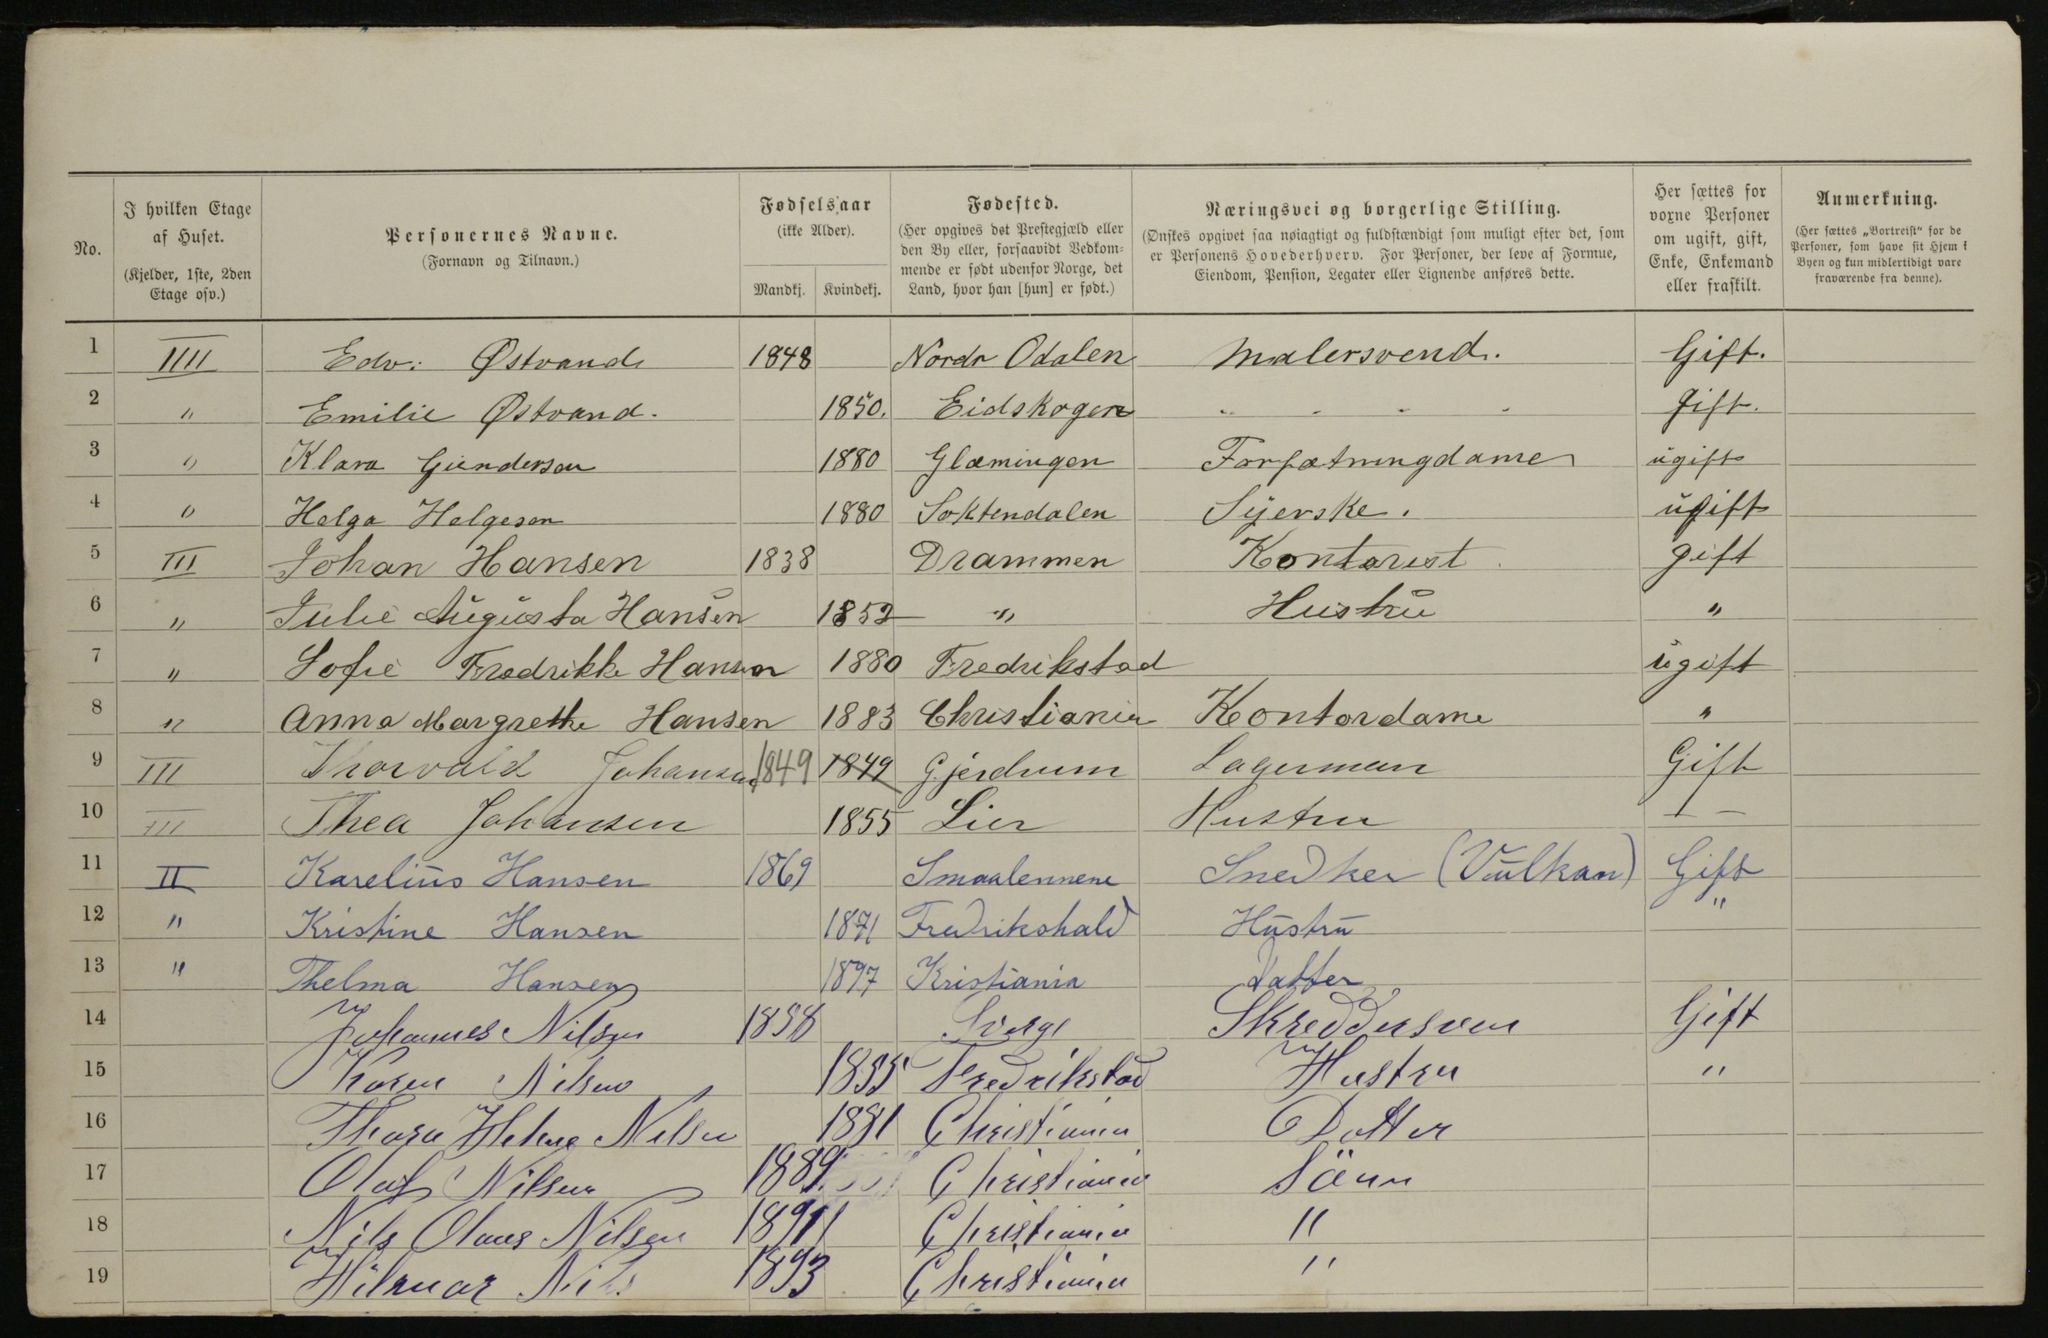 No.
I hvilken Etage af Huset.
(Kjelder, 1ste, 2den Etage osv.)
Personernes Navne.
(Fornavn og Tilnavn.)
Fødselsaar
(ikke Alder).
Mandkj. Kvindekj.
Fødested.
(Her opgives det Prestegjæld eller
den By eller, forsaavidt Vedkom-
mende er født udenfor Norge, det
Land, hvor han [hun] er født.)
Næringsvei og borgerlige Stilling.
(Ønskes opgivet saa nøiagtigt og fuldstændigt som muligt efter det, som
er Personens Hovederhverv. For Personer, der leve af Formue,
Eiendom, Pension, Legater eller Lignende anføres dette.
Her sættes for
voxne Personer
om ugift, gift,
Enke, Enkemand
eller fraskilt.
Anmerkning.
(Her sættes „Bortreist“ for de
Personer, som have sit Hjem i
Byen og kun midlertidigt vare
fraværende fra denne).
1 IIII Edv: Østvand 1848 Nordr Odalen Malersvend. Gift.
2 " Emilie Østvand. 1850. Eidskogen " " " " Gift.
3 " Klara Gundersen 1880 Glæmingen Forfætningdame ugift
4 " Helga Helgesen 1880 Soktendalen Syerske. ugift
5 III Johan Hansen 1838 Drammen Kontorist gift
6 " Julie Augusta Hansen 1852 " Hustru "
7 " Sofie Fredrikke Hansen 1880 Fredrikstad ugift
8 " Anna Margrethe Hansen 1883 Christiania Kontordame "
9 III Thorvald Johansen 1849 1849 Gjerdrum Lagerman Gift
10 III Thea Johansen 1855 Lier Hustru — " —
11 II Karelius Hansen 1869 Smaalennene Snedker (Vulkan) Gift
12 " Kristine Hansen 1871 Fredrikshald Hustru "
13 " Thelma Hansen 1897 Kristiania Datter
14 Johannes Nilsen 1858 Sverge Skreddersven Gift
15 Karen Nilsen 1855 Fredrikstad Hustru "
16 Thora Helene Nilsen 1881 Christiania Dotter
17 Olaf Nilsen 1889 Christiania Sönn
18 Nils Olaus Nilsen 1891 Christiania "
19 Hilmar Nils 1893 Christiania "